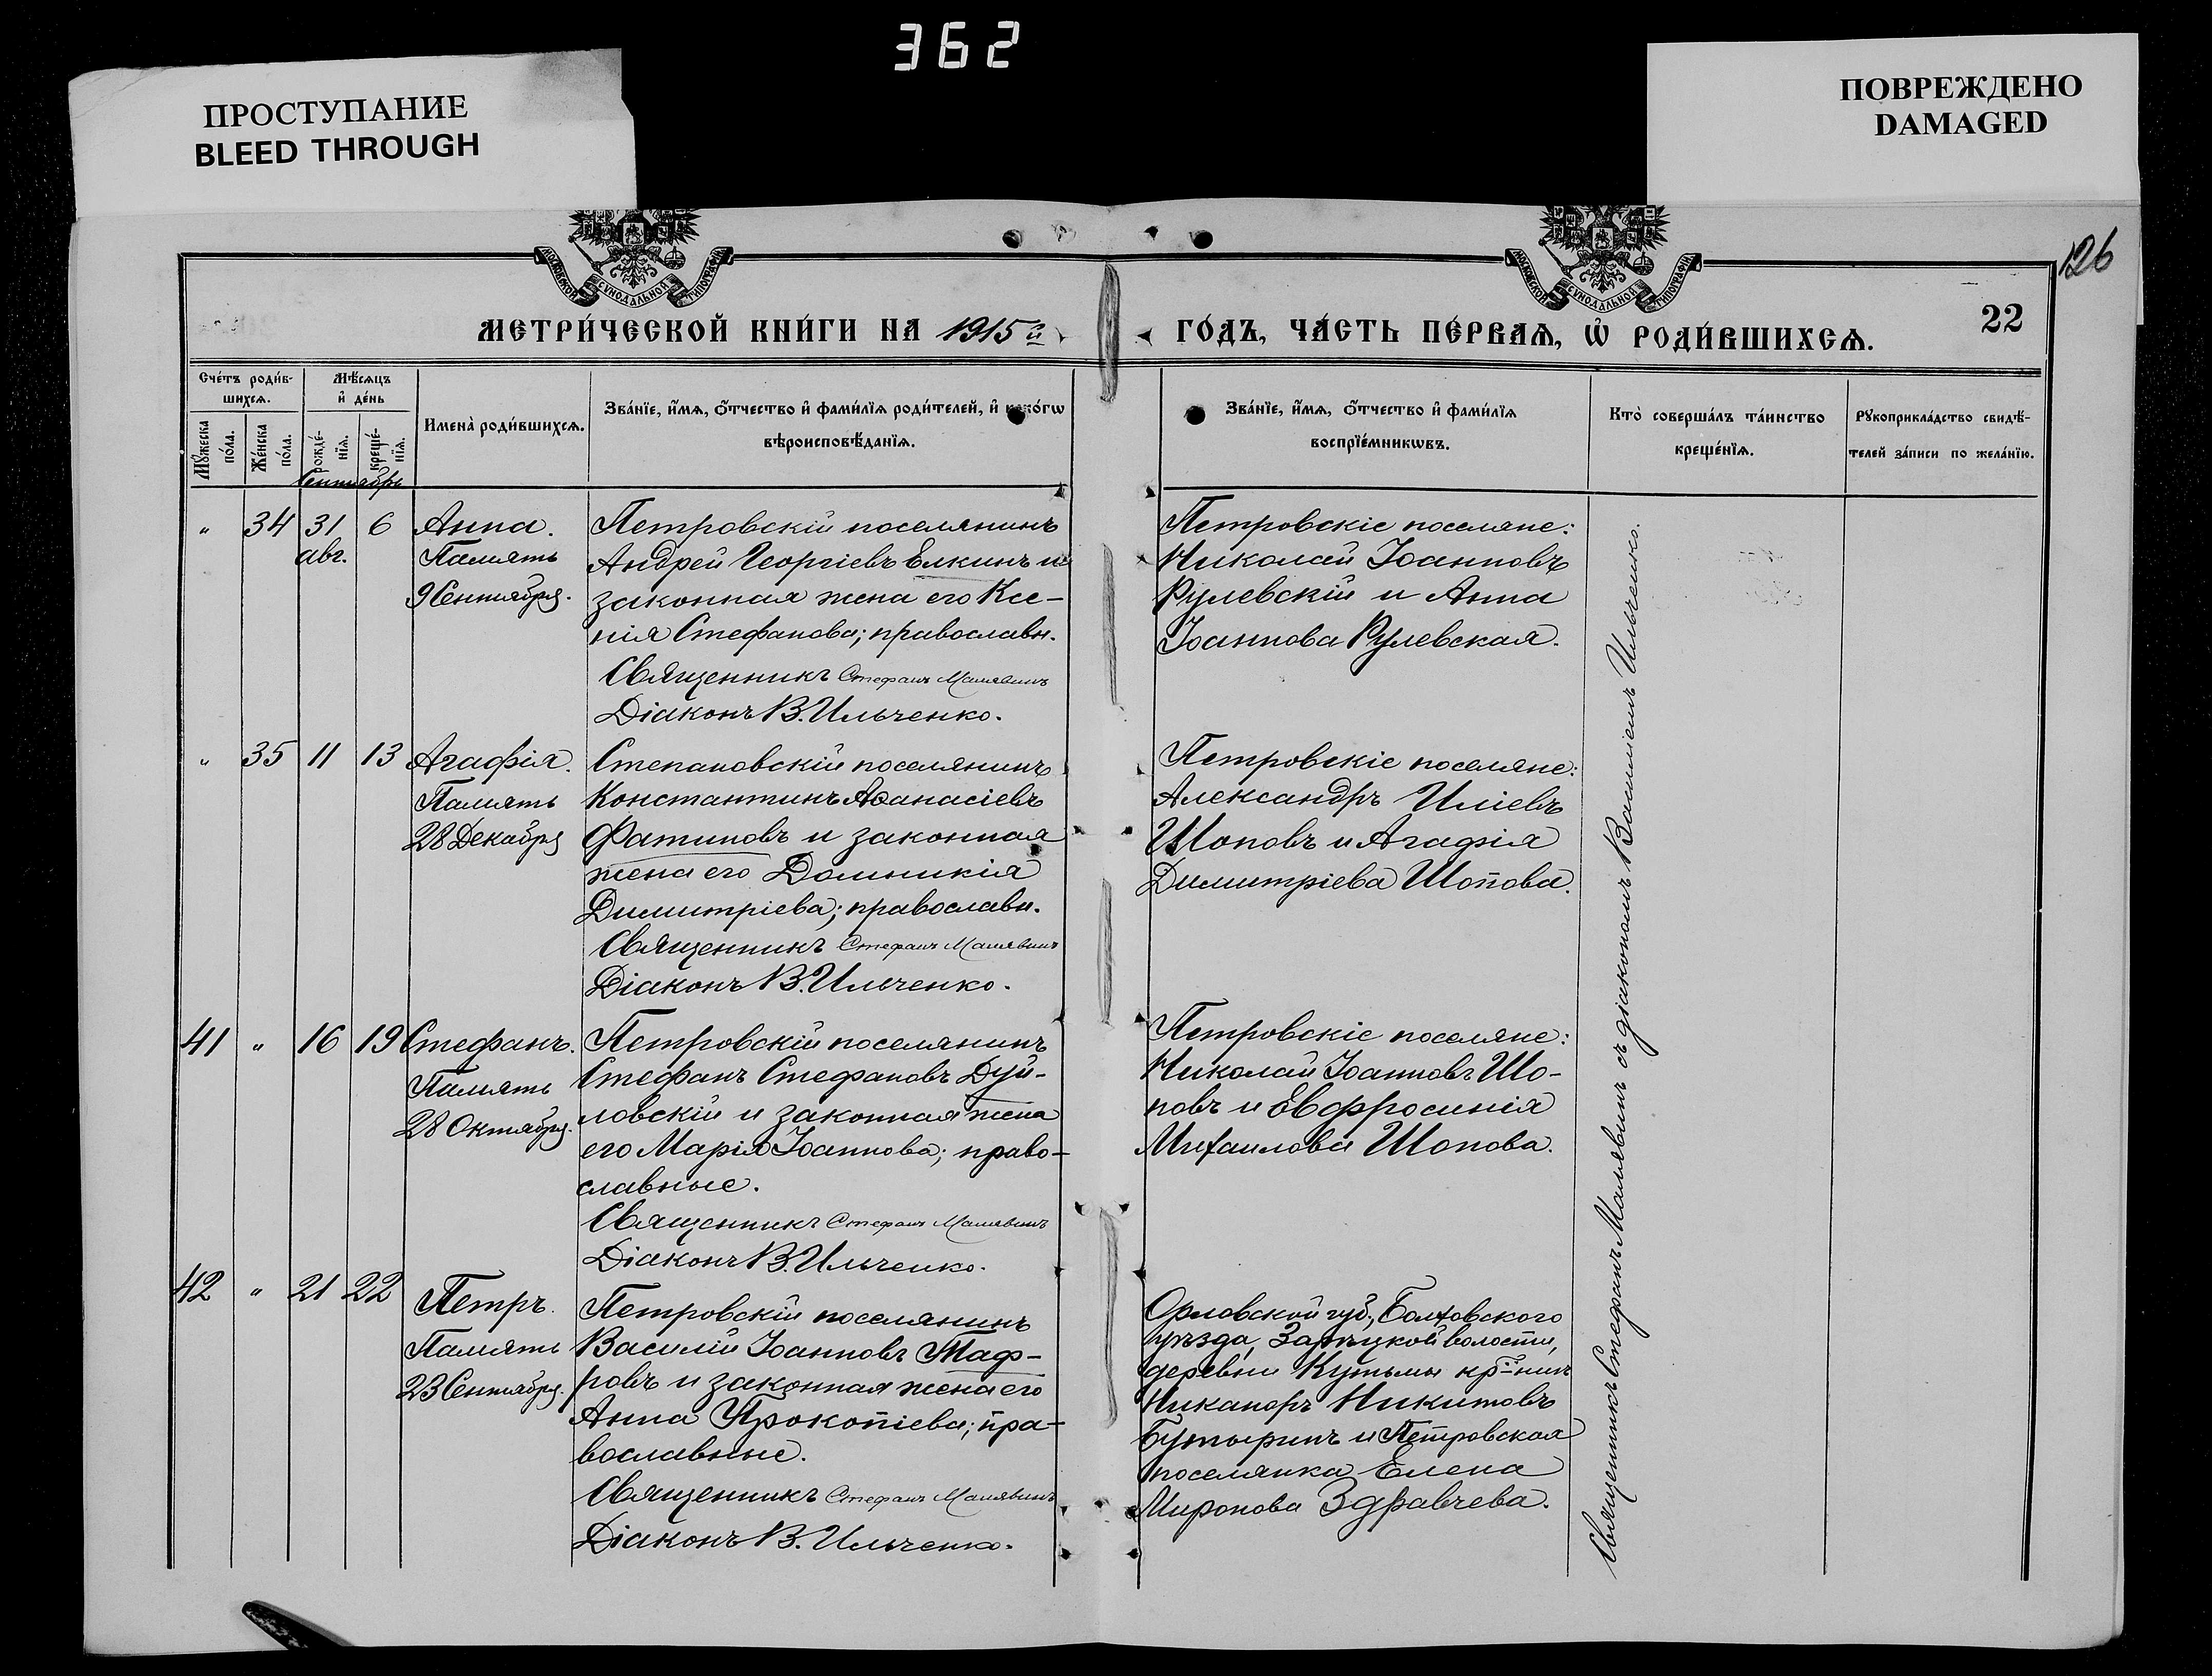 362
ПРОСТУПАНИЕ
BLEED THROUGH
ПОВРЕЖДЕНО
DAMAGED
126
МОСКОВСКОЙ СѴНОДАЛЬНОЙ ТИПОГРАФІИ
МОСКОВСКОЙ СѴНОДАЛЬНОЙ ТИПОГРАФІИ
МЕТРИ́ЧЕСКОЙ КНИ́ГИ НА 1915 й
ГО́ДЪ, ЧА́СТЬ ПЕ́РВАѦ, Ѡ҆ РОДИ́ВШИХСѦ.
22
Сче́тъ роди́в-
шихсѧ.
Мѣ́сѧцъ
и҆ де́нь
Мꙋ́жеска
по́ла.
Же́нска
по́ла.
рожде́-
нїѧ.
креще́-
нїѧ.
Имена̀ роди́вшихсѧ.
Зва́нїе, и҆́мѧ, ѻ҆́тчество и҆ фами́лїѧ роди́телей, и҆ како́гѡ
вѣроисповѣ́данїѧ.
Зва́нїе, и҆́мѧ, ѻ҆́тчество и҆ фами́лїѧ
воспрїе́мникѡвъ.
Кто̀ соверша́лъ та́инство
креще́нїѧ.
Рꙋкоприкла́дство свидѣ́-
телей за́писи по жела́нїю.
Сентябрь
" 34 31 6 Анна.
авг.
Память
9 Сентября.
Петровскій поселянинъ
Андрей Георгіевъ Елкинъ и
законная жена его Ксе-
нія Стефанова; православн.
Священникъ Стефанъ Малявинъ
Діаконъ В. Ильченко.
Петровскіе поселяне:
Николай Іоанновъ
Рулевскій и Анна
Іоаннова Рулевская.
" 35 11 13 Агафія.
Память
28 Декабря
Степановскій поселянинъ
Константинъ Аѳанасіевъ
Фатиновъ и законная
жена его Домникія
Димитріева; православн.
Священникъ Стефанъ Малявинъ
Діаконъ В. Ильченко.
Петровскіе поселяне:
Александръ Иліевъ
Шоповъ и Агафія
Димитріева Шопова.
41 " 16 19 Стефанъ.
Память
28 Октября.
Петровскій поселянинъ
Стефанъ Стефановъ Дуй-
ловскій и законная жена
его Марія Іоаннова; право-
славные.
Священникъ Стефанъ Малявинъ
Діаконъ В. Ильченко.
Петровскіе поселяне:
Николай Іоанновъ Шо-
повъ и Евфросинія
Михаилова Шопова.
42 " 21 22 Петръ.
Память
23 Сентября.
Петровскій поселянинъ
Василій Іоанновъ Таф-
ровъ и законная жена его
Анна Прокопіева; пра-
вославные.
Священникъ Стефанъ Малявинъ
Діаконъ В. Ильченко.
Орловской губ., Болховского
уѣзда, Зарѣцкой волости,
деревни Кутьмы кр-нинъ
Никаноръ Никитовъ
Бутыринъ и Петровская
поселянка Елена
Миронова Здравчева.
Священникъ Стефанъ Малявинъ съ діакономъ Василіемъ Ильченко.